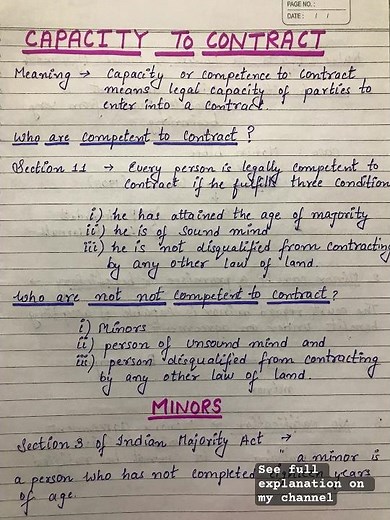 PAGE NO.:
DATE: / /
CAPACITY TO CONTRACT
Meaning → Capacity or competence to contract
means legal capacity of parties to
enter into a contract.
Who are competent to contract ?
Section 11 → Every person is legally competent to
contract if he fulfills three condition
i) he has attained the age of majority
ii) he is of sound mind
iii) he is not disqualified from contracting
by any other law of land.
Who are not not competent to contract ?
i) Minors
ii) person of unsound mind and
iii) person disqualified from contracting
by any other law of land.
MINORS
Section 3 of Indian Majority Act →
" a minor is
a person who has not completed years
of age.
See full
explanation on
my channel